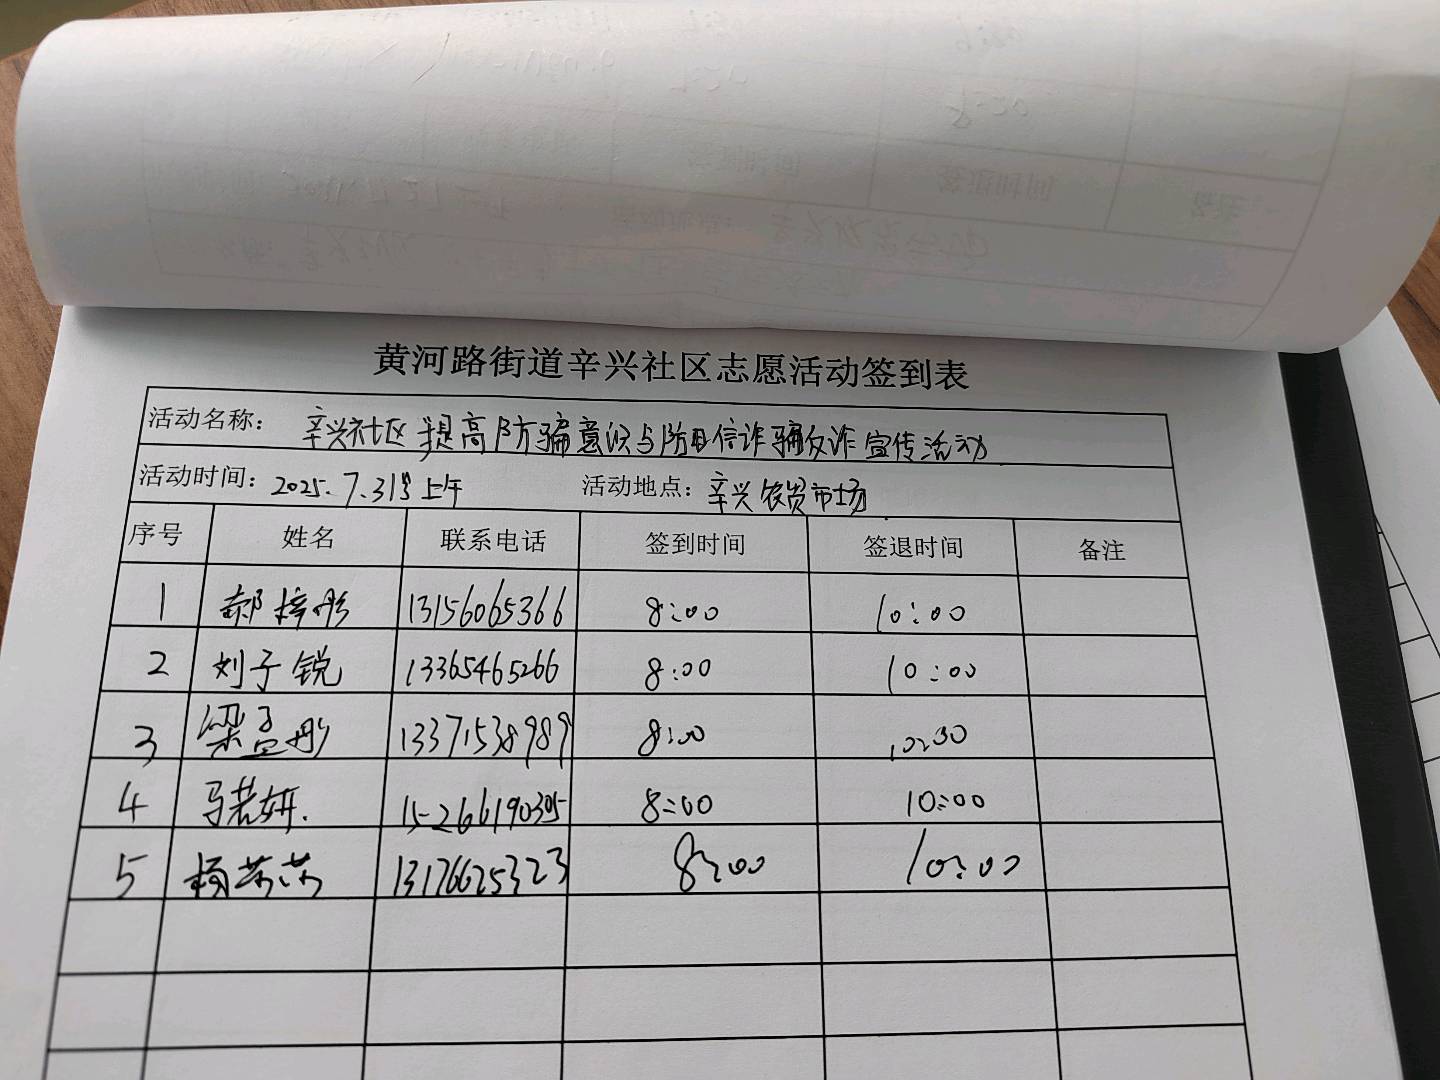 黄河路街道辛兴社区志愿活动签到表
活动名称: 辛兴社区提高防骗意识与防电信诈骗反诈宣传活动
活动时间: 2025.7.31日上午 活动地点: 辛兴农贸市场
序号 姓名 联系电话 签到时间 签退时间 备注
1 郝梓彤 13156065366 8:00 10:00
2 刘子锐 13365465266 8:00 10:00
3 梁孟彤 13371538989 8:00 10:30
4 马若妍. 15266190305 8:00 10:00
5 杨芮芮 13176625323 8:00 10:00
签到时间 签退时间 备注